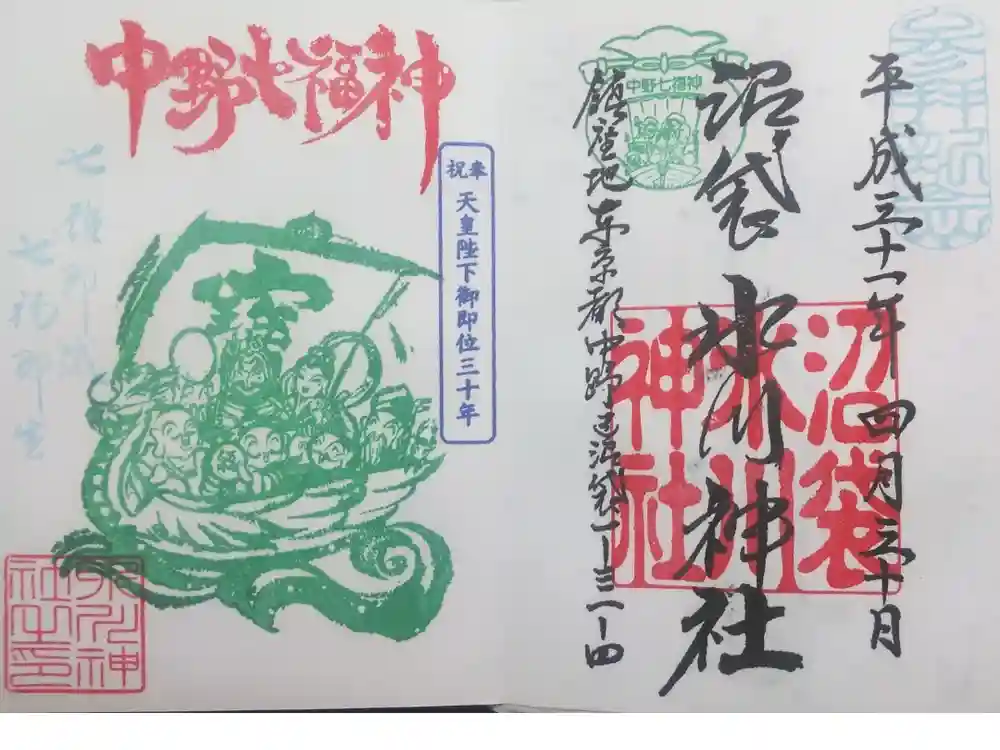 参拝記念
平成三十一年 四月三十日
中野七福神
沼袋 氷川神社
沼袋
氷川
神社
鎮座地 東京都中野区沼袋一ー三一ー四
中野七福神
奉祝 天皇陛下御即位三十年
宝
七難即滅
七福即生
氷川神
社之印